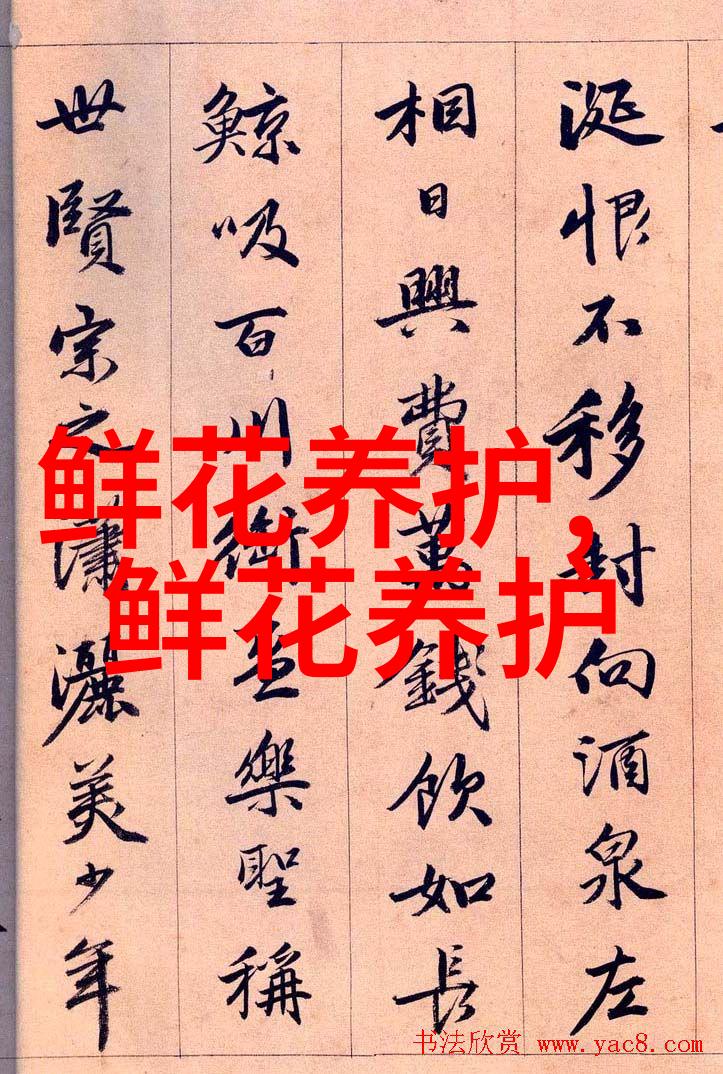 涎恨不移封向酒泉左
相日興費萬錢飲如長
鯨吸百川銜盃樂聖稱
世賢宗之瀟灑美少年
鲜花养护,
鲜花养护
书法欣赏 www.yac8.com